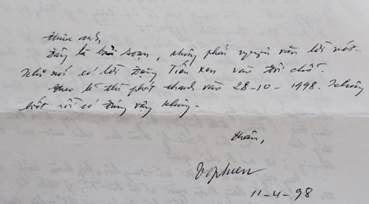 Thưa anh,
Đây là bài soạn, không phải nguyên văn lời nói.
Nhà nó có lời Đặng Tiến xen vào đôi chỗ.
theo kể thì phát thanh vào 28-10-1998. Không
biết rồi có đúng vậy không.
Thân,
Võ Phiến
11-4-98